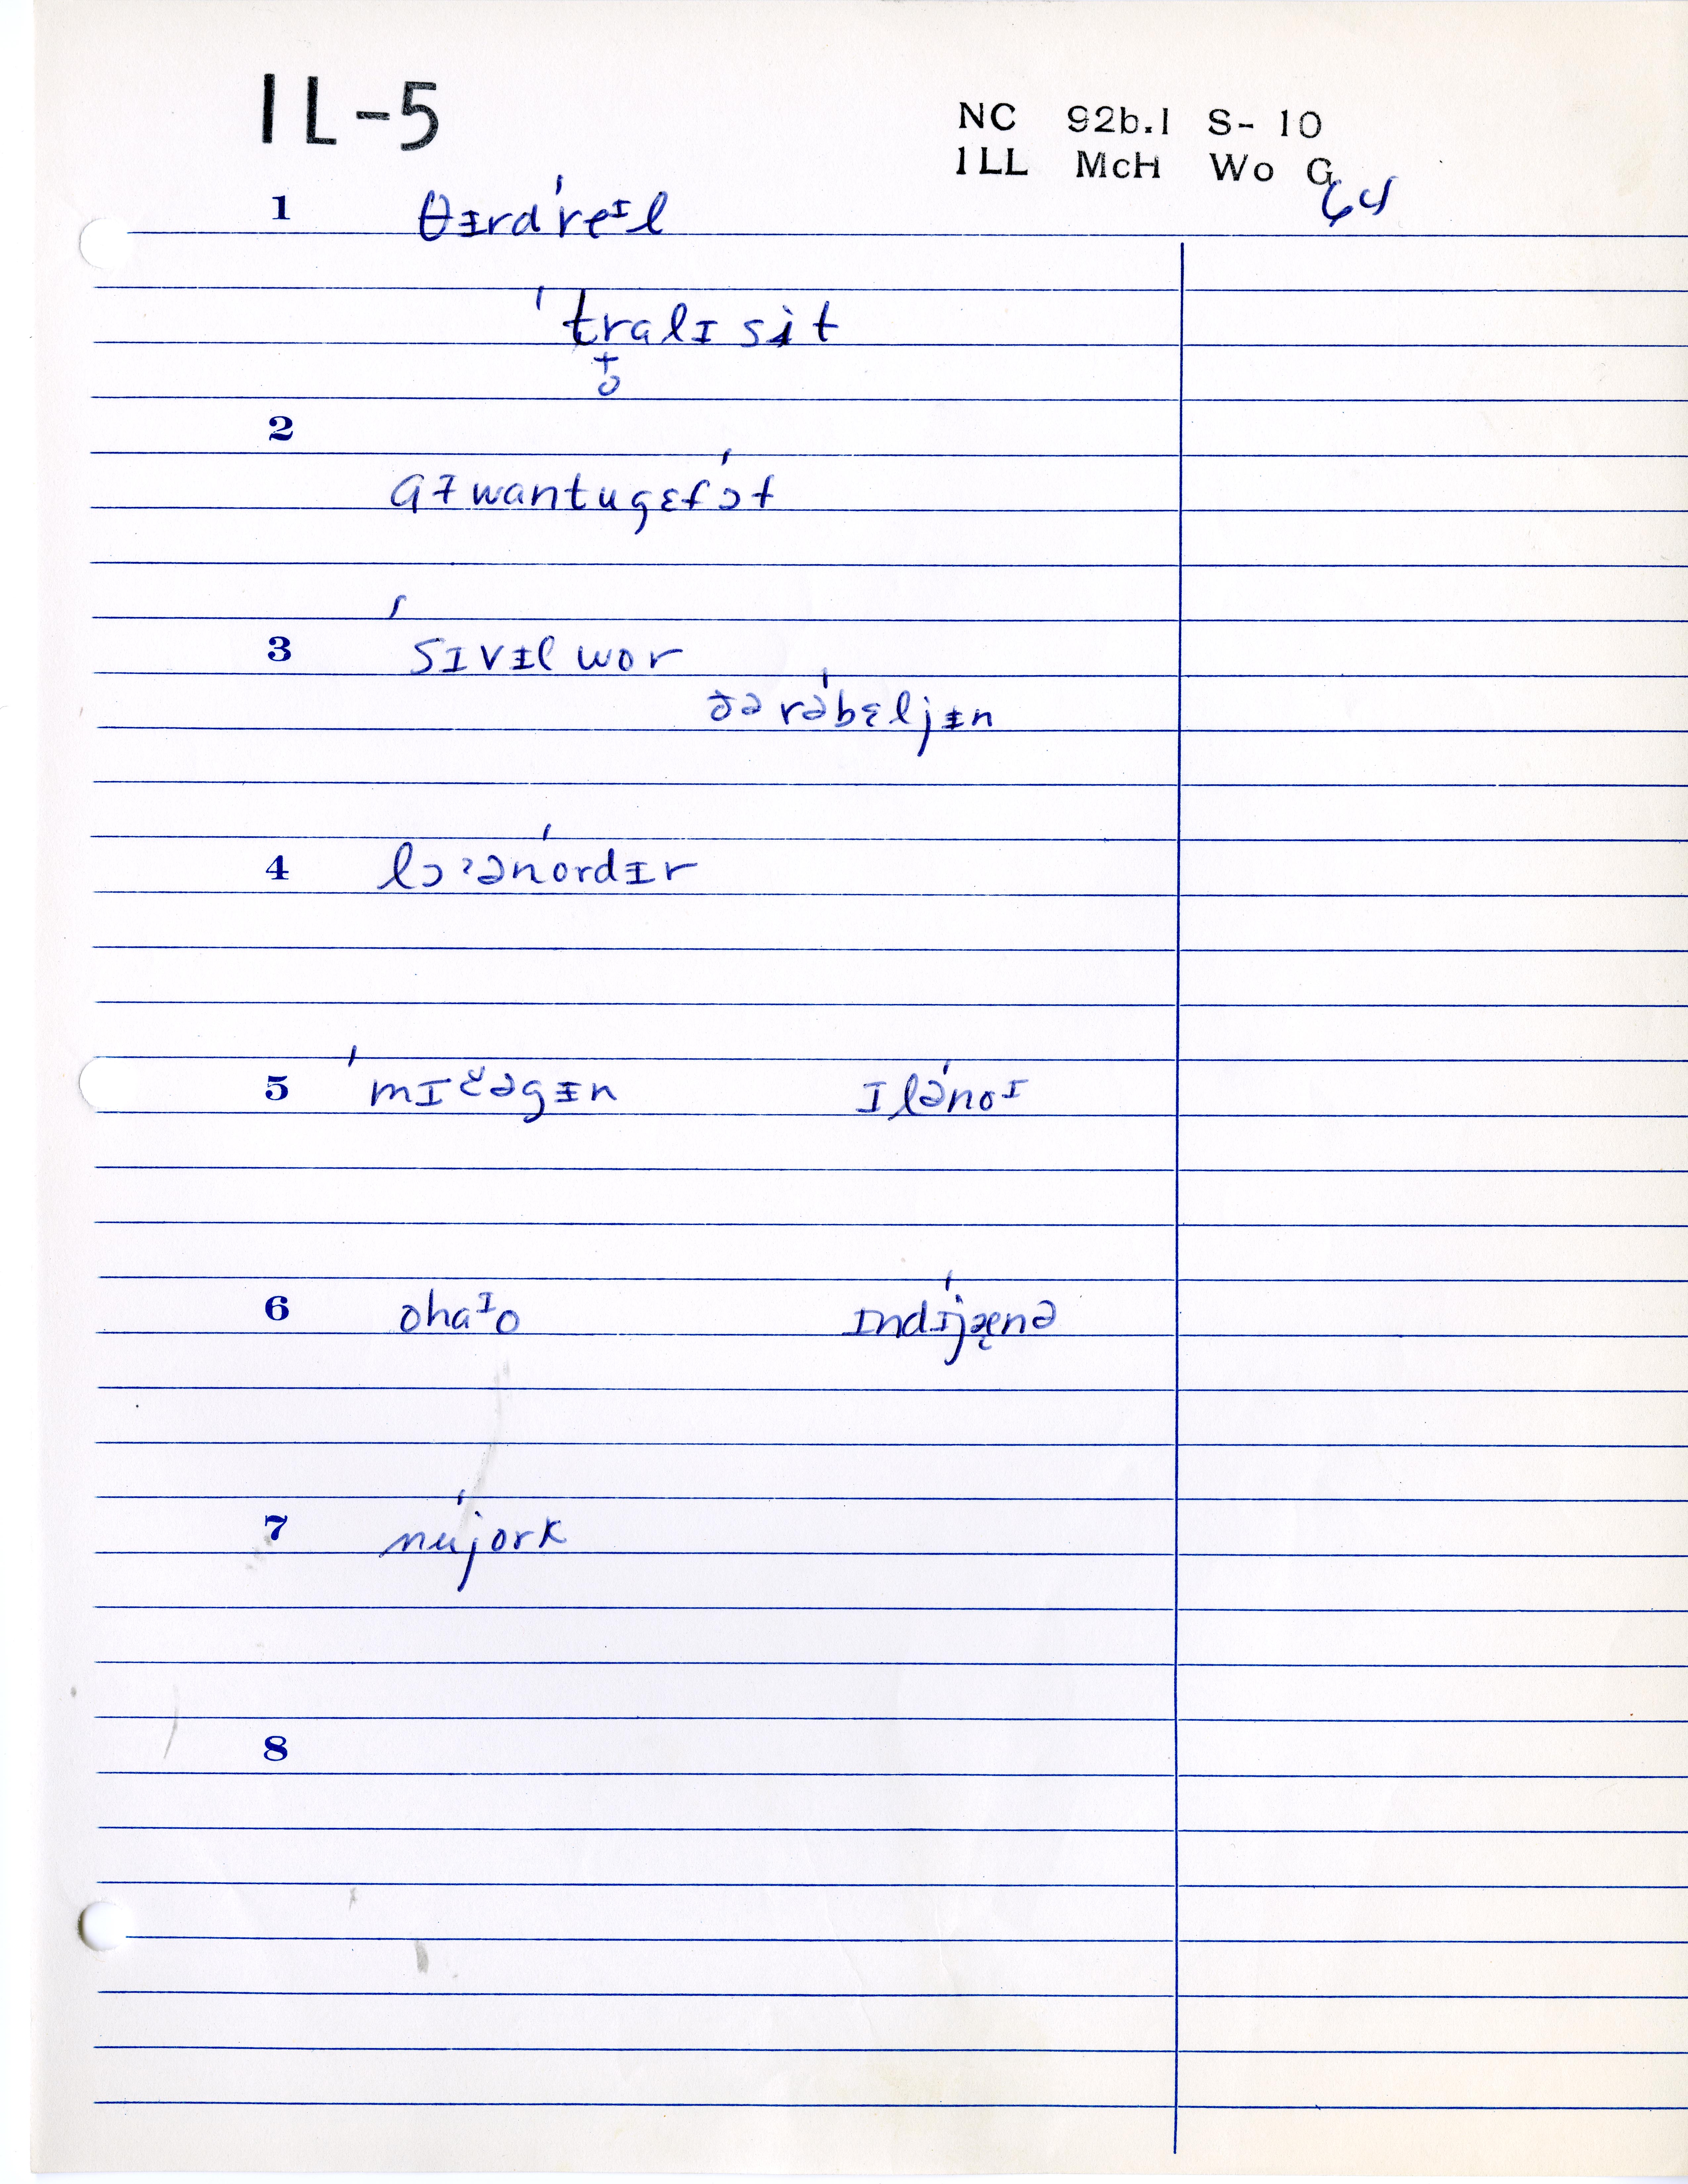 IL-5
NC 92b.1 S- 10
1LL McH Wo G
64
1 θᵻrdˈreᴵl
ˈtralɪ sit
2
aɫwantugɛˈfɔɫ
3 ˈsɪvᵻl wor
ðə rəˈbɛljᵻn
4 lɔˀənˈordᵻr
5 ˈmɪčəgᵻn ɪləˈnoᴵ
6 ohaᴵo ɪndɪˈjænə
7 nuˈjork
8